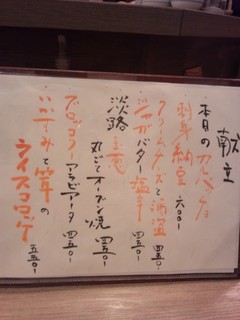 献立
本日のカルパッチョ
刺身納豆 六〇〇
クリームチーズと酒盗
じゃがバター塩辛 四五〇
淡路玉葱
丸ごとオーブン焼 四五〇
ブロッコリーアラビアータ 四五〇
いいだこと筍の
ライスコロッケ 五五〇